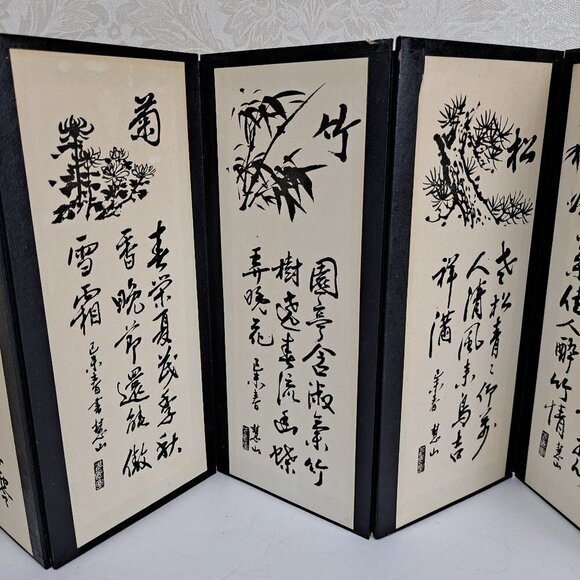 佳人醉竹情
松
老松青々仰萬
人清風来鳥吉
祥満
慧山
竹
園亭含淑氣竹
樹遶春流幽蝶
弄晩花
己未春 慧山
菊
春榮夏茂季秋
香晩節還能傲
雪霜
己未春書 慧山